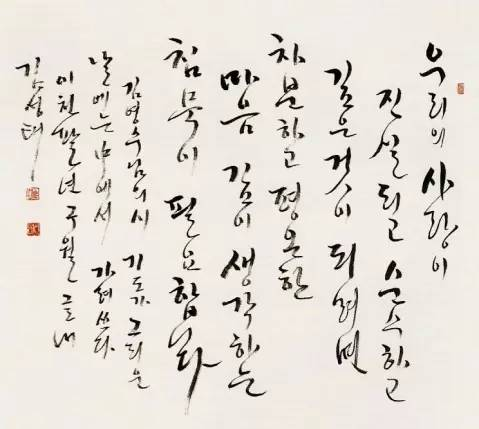 우리의 사랑이
진실되고 순수하고
깊은 것이 되려면
차분하고 평온한
마음 깊이 생각하는
침묵이 필요합니다
김영수님의 시 기도가 그리운
날에는 中에서 가려 쓰다
이천팔년 구월
김성태